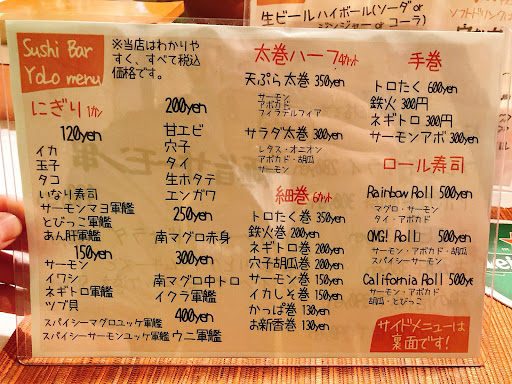 生ビール ハイボール(ソーダor
ジンジャーor コーラ)
ソフトドリンクは
Sushi Bar
YoLo menu
※当店はわかりや
すく、すべて税込
価格です。
にぎり 1カン
120yen
イカ
玉子
タコ
いなり寿司
サーモンマヨ軍艦
とびっこ軍艦
あん肝軍艦
150yen
サーモン
イワシ
ネギトロ軍艦
ツブ貝
スパイシーマグロユッケ軍艦
スパイシーサーモンユッケ軍艦
200yen
甘エビ
穴子
タイ
生ホタテ
エンガワ
250yen
南マグロ赤身
300yen
南マグロ中トロ
イクラ軍艦
400yen
ウニ軍艦
太巻ハーフ4カット
天ぷら太巻 350yen
サーモン
アボカド
フィラデルフィア
サラダ太巻 300yen
レタス・オニオン
アボカド・胡瓜
サーモン
細巻 6カット
トロたく巻 350yen
鉄火巻 200yen
ネギトロ巻 200yen
穴子胡瓜巻 200yen
サーモン巻 150yen
イカしそ巻 150yen
かっぱ巻 130yen
お新香巻 130yen
手巻
トロたく 600yen
鉄火 300円
ネギトロ 300円
サーモンアボ 300yen
ロール寿司
Rainbow Roll 500yen
マグロ・サーモン
タイ・アボカド
OMG! Roll 500yen
サーモン・アボカド・胡瓜
スパイシーサーモン
California Roll 500ye
サーモン・アボカド
胡瓜・とびっこ
サイドメニューは
裏面です!